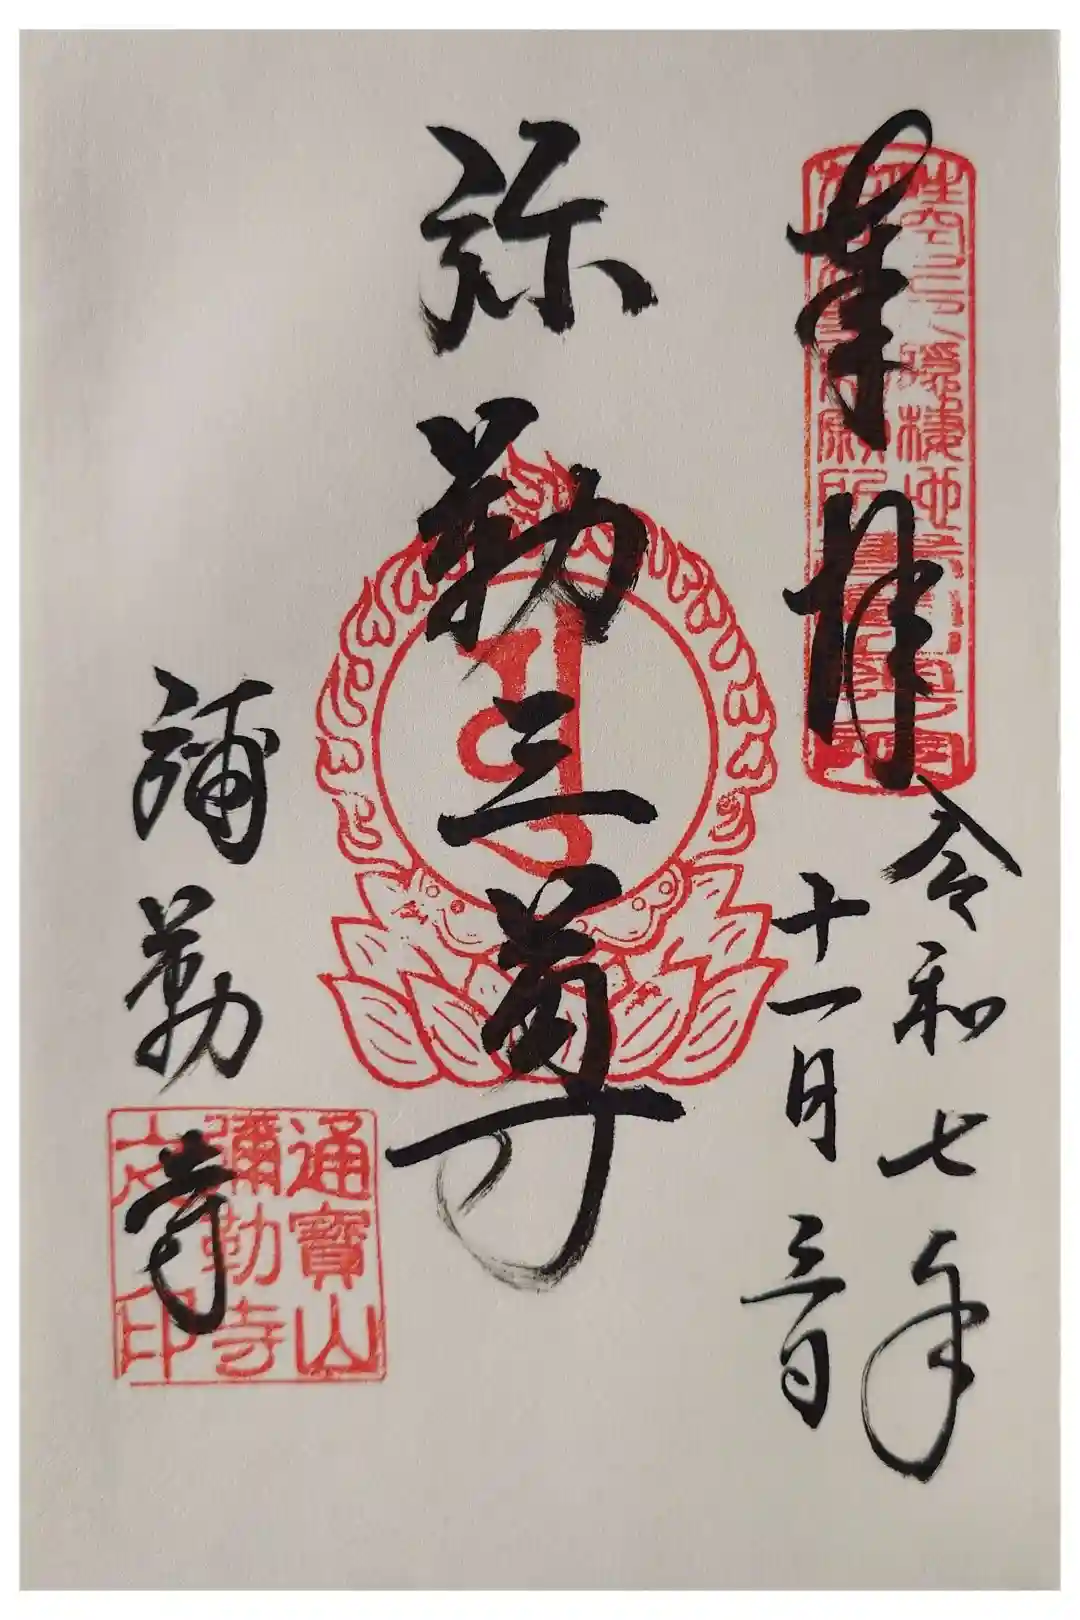 奉拝
令和七年
十一月三日
弥勒三尊
彌勒寺
通寶山
彌勒寺
之印